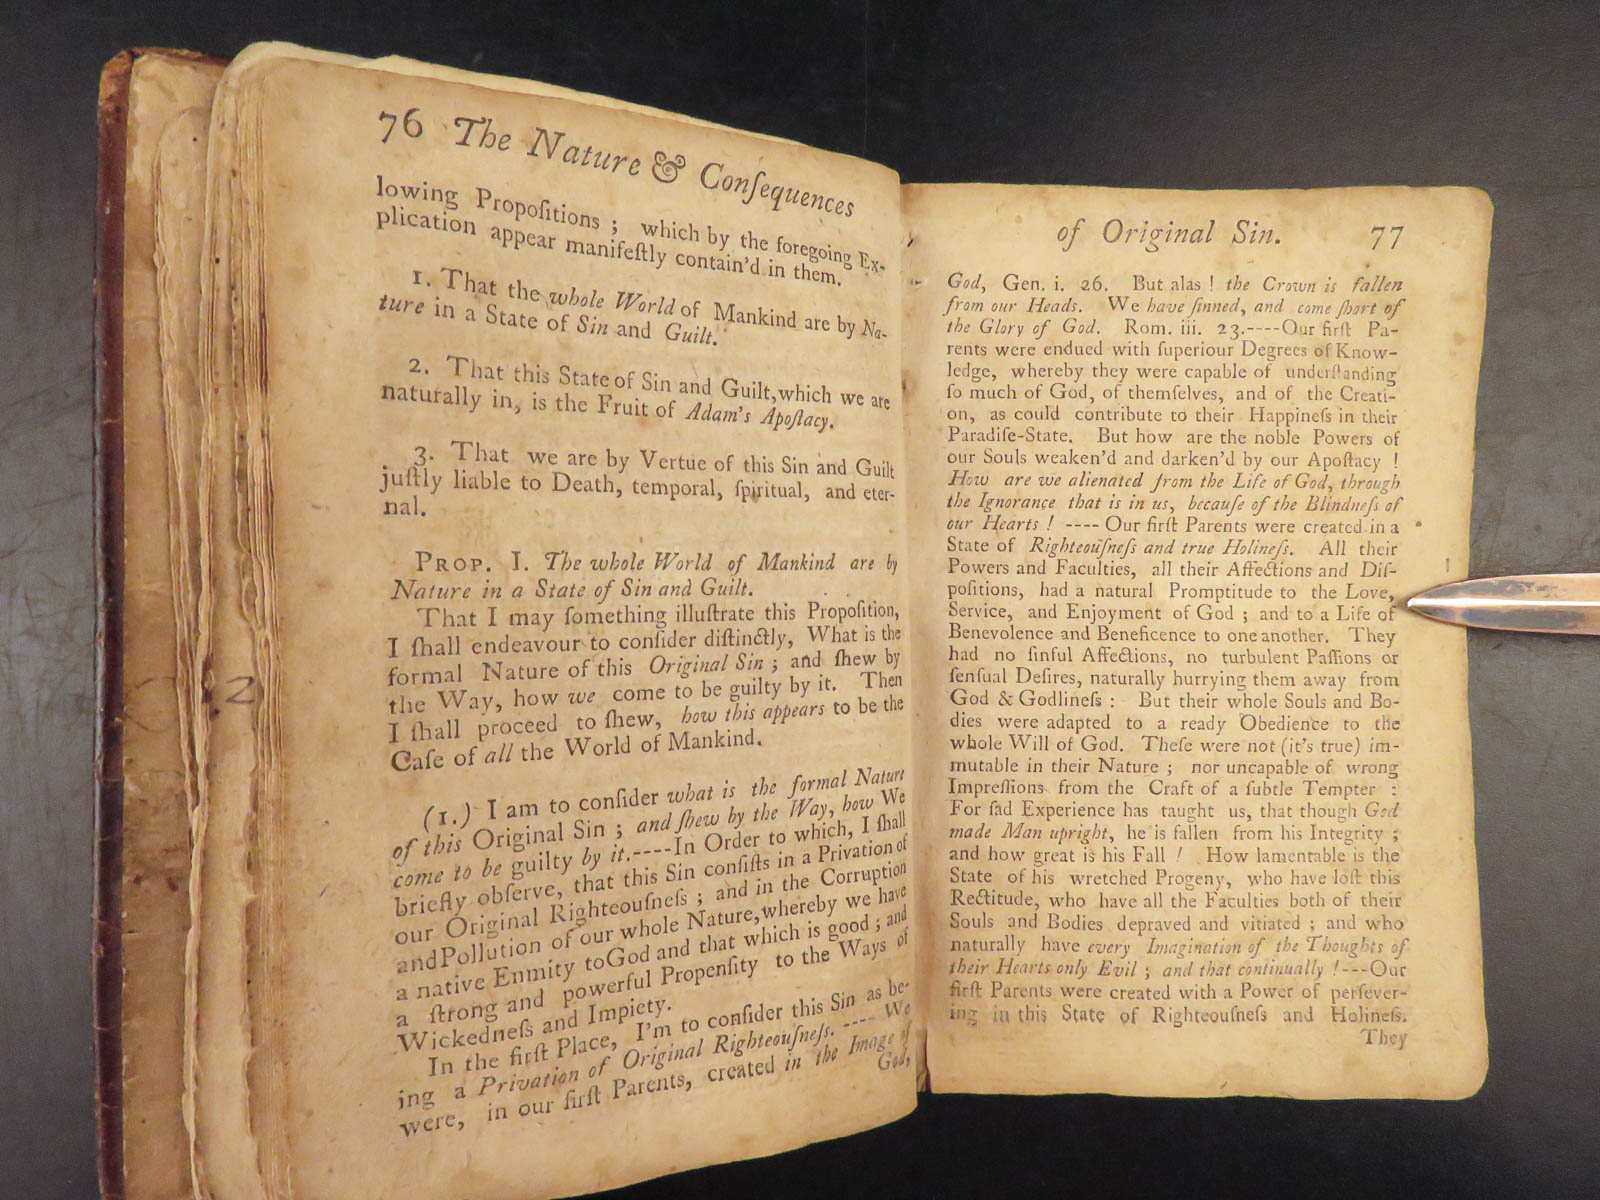 76 The Nature & Conſequences
lowing Propoſitions ; which by the foregoing Ex-
plication appear manifeſtly contain'd in them.
1. That the whole World of Mankind are by Na-
ture in a State of Sin and Guilt.
2. That this State of Sin and Guilt, which we are
naturally in, is the Fruit of Adam's Apoſtacy.
3. That we are by Vertue of this Sin and Guilt
juſtly liable to Death, temporal, ſpiritual, and eter-
nal.
PROP. I. The whole World of Mankind are by
Nature in a State of Sin and Guilt.
That I may ſomething illuſtrate this Propoſition,
I ſhall endeavour to conſider diſtinctly, What is the
formal Nature of this Original Sin ; and ſhew by
the Way, how we come to be guilty by it. Then
I ſhall proceed to ſhew, how this appears to be the
Caſe of all the World of Mankind.
(1.) I am to conſider what is the formal Nature
of this Original Sin ; and ſhew by the Way, how We
come to be guilty by it.----In Order to which, I ſhall
briefly obſerve, that this Sin conſiſts in a Privation of
our Original Righteouſneſs ; and in the Corruption
and Pollution of our whole Nature, whereby we have
a native Enmity to God and that which is good ; and
a ſtrong and powerful Propenſity to the Ways of
Wickedneſs and Impiety.
In the firſt Place, I'm to conſider this Sin as be-
ing a Privation of Original Righteouſneſs. ---- We
were, in our firſt Parents, created in the Image of
God,
2
of Original Sin. 77
God, Gen. i. 26. But alas ! the Crown is fallen
from our Heads. We have ſinned, and come ſhort of
the Glory of God. Rom. iii. 23.----Our firſt Pa-
rents were endued with ſuperiour Degrees of Know-
ledge, whereby they were capable of underſtanding
ſo much of God, of themſelves, and of the Creati-
on, as could contribute to their Happineſs in their
Paradiſe-State. But how are the noble Powers of
our Souls weaken'd and darken'd by our Apoſtacy !
How are we alienated from the Life of God, through
the Ignorance that is in us, becauſe of the Blindneſs of
our Hearts ! ---- Our firſt Parents were created in a
State of Righteouſneſs and true Holineſs. All their
Powers and Faculties, all their Affections and Diſ-
poſitions, had a natural Promptitude to the Love,
Service, and Enjoyment of God ; and to a Life of
Benevolence and Beneficence to one another. They
had no ſinful Affections, no turbulent Paſſions or
ſenſual Deſires, naturally hurrying them away from
God & Godlineſs : But their whole Souls and Bo-
dies were adapted to a ready Obedience to the
whole Will of God. Theſe were not (it's true) im-
mutable in their Nature ; nor uncapable of wrong
Impreſſions from the Craft of a ſubtle Tempter :
For ſad Experience has taught us, that though God
made Man upright, he is fallen from his Integrity ;
and how great is his Fall ! How lamentable is the
State of his wretched Progeny, who have loſt this
Rectitude, who have all the Faculties both of their
Souls and Bodies depraved and vitiated ; and who
naturally have every Imagination of the Thoughts of
their Hearts only Evil ; and that continually !---Our
firſt Parents were created with a Power of perſever-
ing in this State of Righteouſneſs and Holineſs.
They